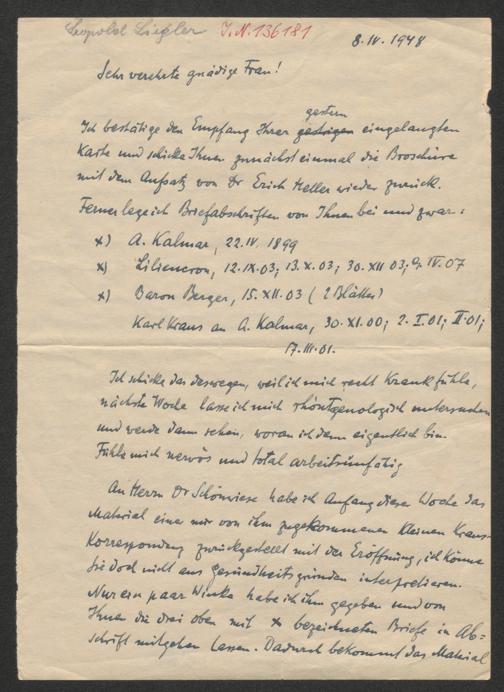 Leopold Liegler J.N. 136181
8. IV. 1948
Sehr verehrte gnädige Frau!
gestern
Ich bestätige den Empfang Ihrer gestrigen eingelangten
Karte und schicke Ihnen zunächst einmal die Broschüre
mit dem Aufsatz von Dr Erich Heller wieder zurück.
Ferner lege ich Briefabschriften von Ihnen bei und zwar:
x) A. Kalmar, 22. IV. 1899
x) Liliencron, 12. IX. 03; 13. X. 03; 30. XII 03; 9. IV. 07
x) Baron Berger, 15. XII. 03 (2 Blätter)
Karl Kraus an A. Kalmar, 30. XI. 00; 2. I. 01; II. 01;
17. III. 01.
Ich schicke das deswegen, weil ich mich recht krank fühle,
nächste Woche lasse ich mich rhöntgenologisch untersuchen
und werde dann sehen, woran ich denn eigentlich bin.
Fühle mich nervös und total arbeitsunfähig
An Herrn Dr Schönwiese habe ich Anfang dieser Woche das
Material einer mir von ihm zugekommenen kleinen Kraus-
Korrespondenz zurückgestellt mit der Eröffnung, ich könne
sie doch nicht aus Gesundheitsgründen interpretieren.
Nur ein paar Winke habe ich ihm gegeben und von
Ihnen die drei oben mit x bezeichneten Briefe in Ab=
schrift mitgehen lassen. Dadurch bekommt das Material